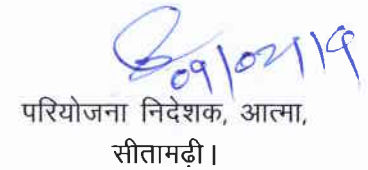 09/02/19
परियोजना निदेशक, आत्मा,
सीतामढ़ी।